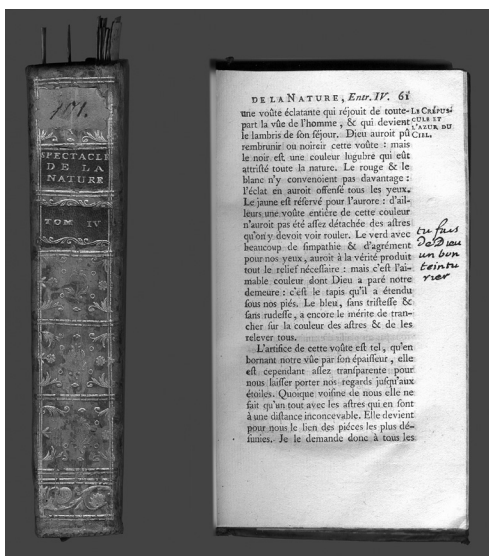 SPECTACLE
DE LA
NATURE
TOM IV
DE LA NATURE, Entr. IV. 61
une voûte éclatante qui réjouit de toute-
part la vûe de l'homme, & qui devient
le lambris de son séjour. Dieu auroit pû
rembrunir ou noircir cette voûte : mais
le noir est une couleur lugubre qui eût
attristé toute la nature. Le rouge & le
blanc n'y convenoient pas davantage :
l'éclat en auroit offensé tous les yeux.
Le jaune est réservé pour l'aurore : d'ail-
leurs une voûte entière de cette couleur
n'auroit pas été assez détachée des astres
qu'on y devoit voir rouler. Le verd avec
beaucoup de simpathie & d'agrément
pour nos yeux, auroit à la vérité produit
tout le relief nécessaire : mais c'est l'ai-
mable couleur dont Dieu a paré notre
demeure : c'est le tapis qu'il a étendu
sous nos piés. Le bleu, sans tristesse &
sans rudesse, a encore le mérite de tran-
cher sur la couleur des astres & de les
relever tous.
L'artifice de cette voûte est tel, qu'en
bornant notre vûe par son épaisseur, elle
est cependant assez transparente pour
nous laisser porter nos regards jusqu'aux
étoiles. Quoique voisine de nous elle ne
fait qu'un tout avec les astres qui en sont
à une distance inconcevable. Elle devient
pour nous le lien des piéces les plus dé-
sunies. Je le demande donc à tous les
LE CRÉPUS-
CULE ET
L'AZUR DU
CIEL.
tu fais
de Dieu
un bon
teintu
rier